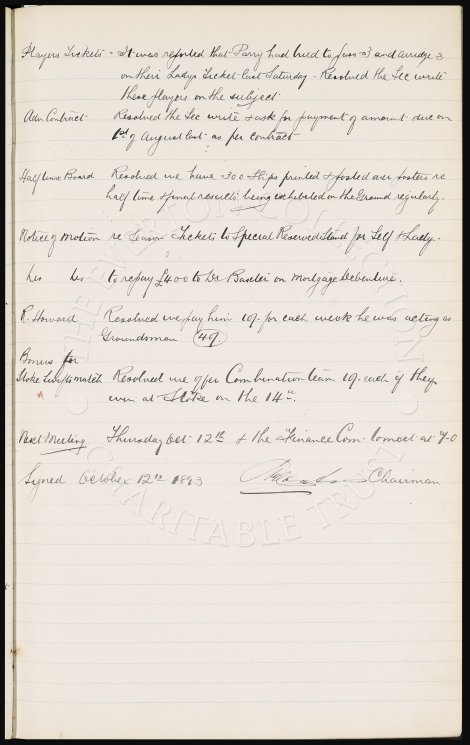 Players Tickets - It was reported that Parry had tried to pass 3 and Arridge 2
on their Ladys Ticket last Saturday - Resolved the Sec write
these players on the subject
Adv. Contract - Resolved the Sec write & ask for payment of amount due on
1st of August last as per contract
Half time Board Resolved we have 300 slips printed & posted over posters re
half time & final results being exhibited on the Ground regularly.
Notice of Motion re Season Tickets to Special Reserved Stand for Self & Lady.
Do Do to repay £400 to Dr Baxter on Mortgage Debenture.
R. Howard Resolved we pay him 10/- for each week he was acting as
Groundsman (40/-)
Bonus for
Stoke Swifts match Resolved we offer Combination team 10/- each if they
win at Stoke on the 14th.
Next Meeting Thursday Oct 12th & the Finance Com. to meet at 7-0
Signed October 12th 1893 Chairman
THE EVERTON COLLECTION
CHARITABLE TRUST